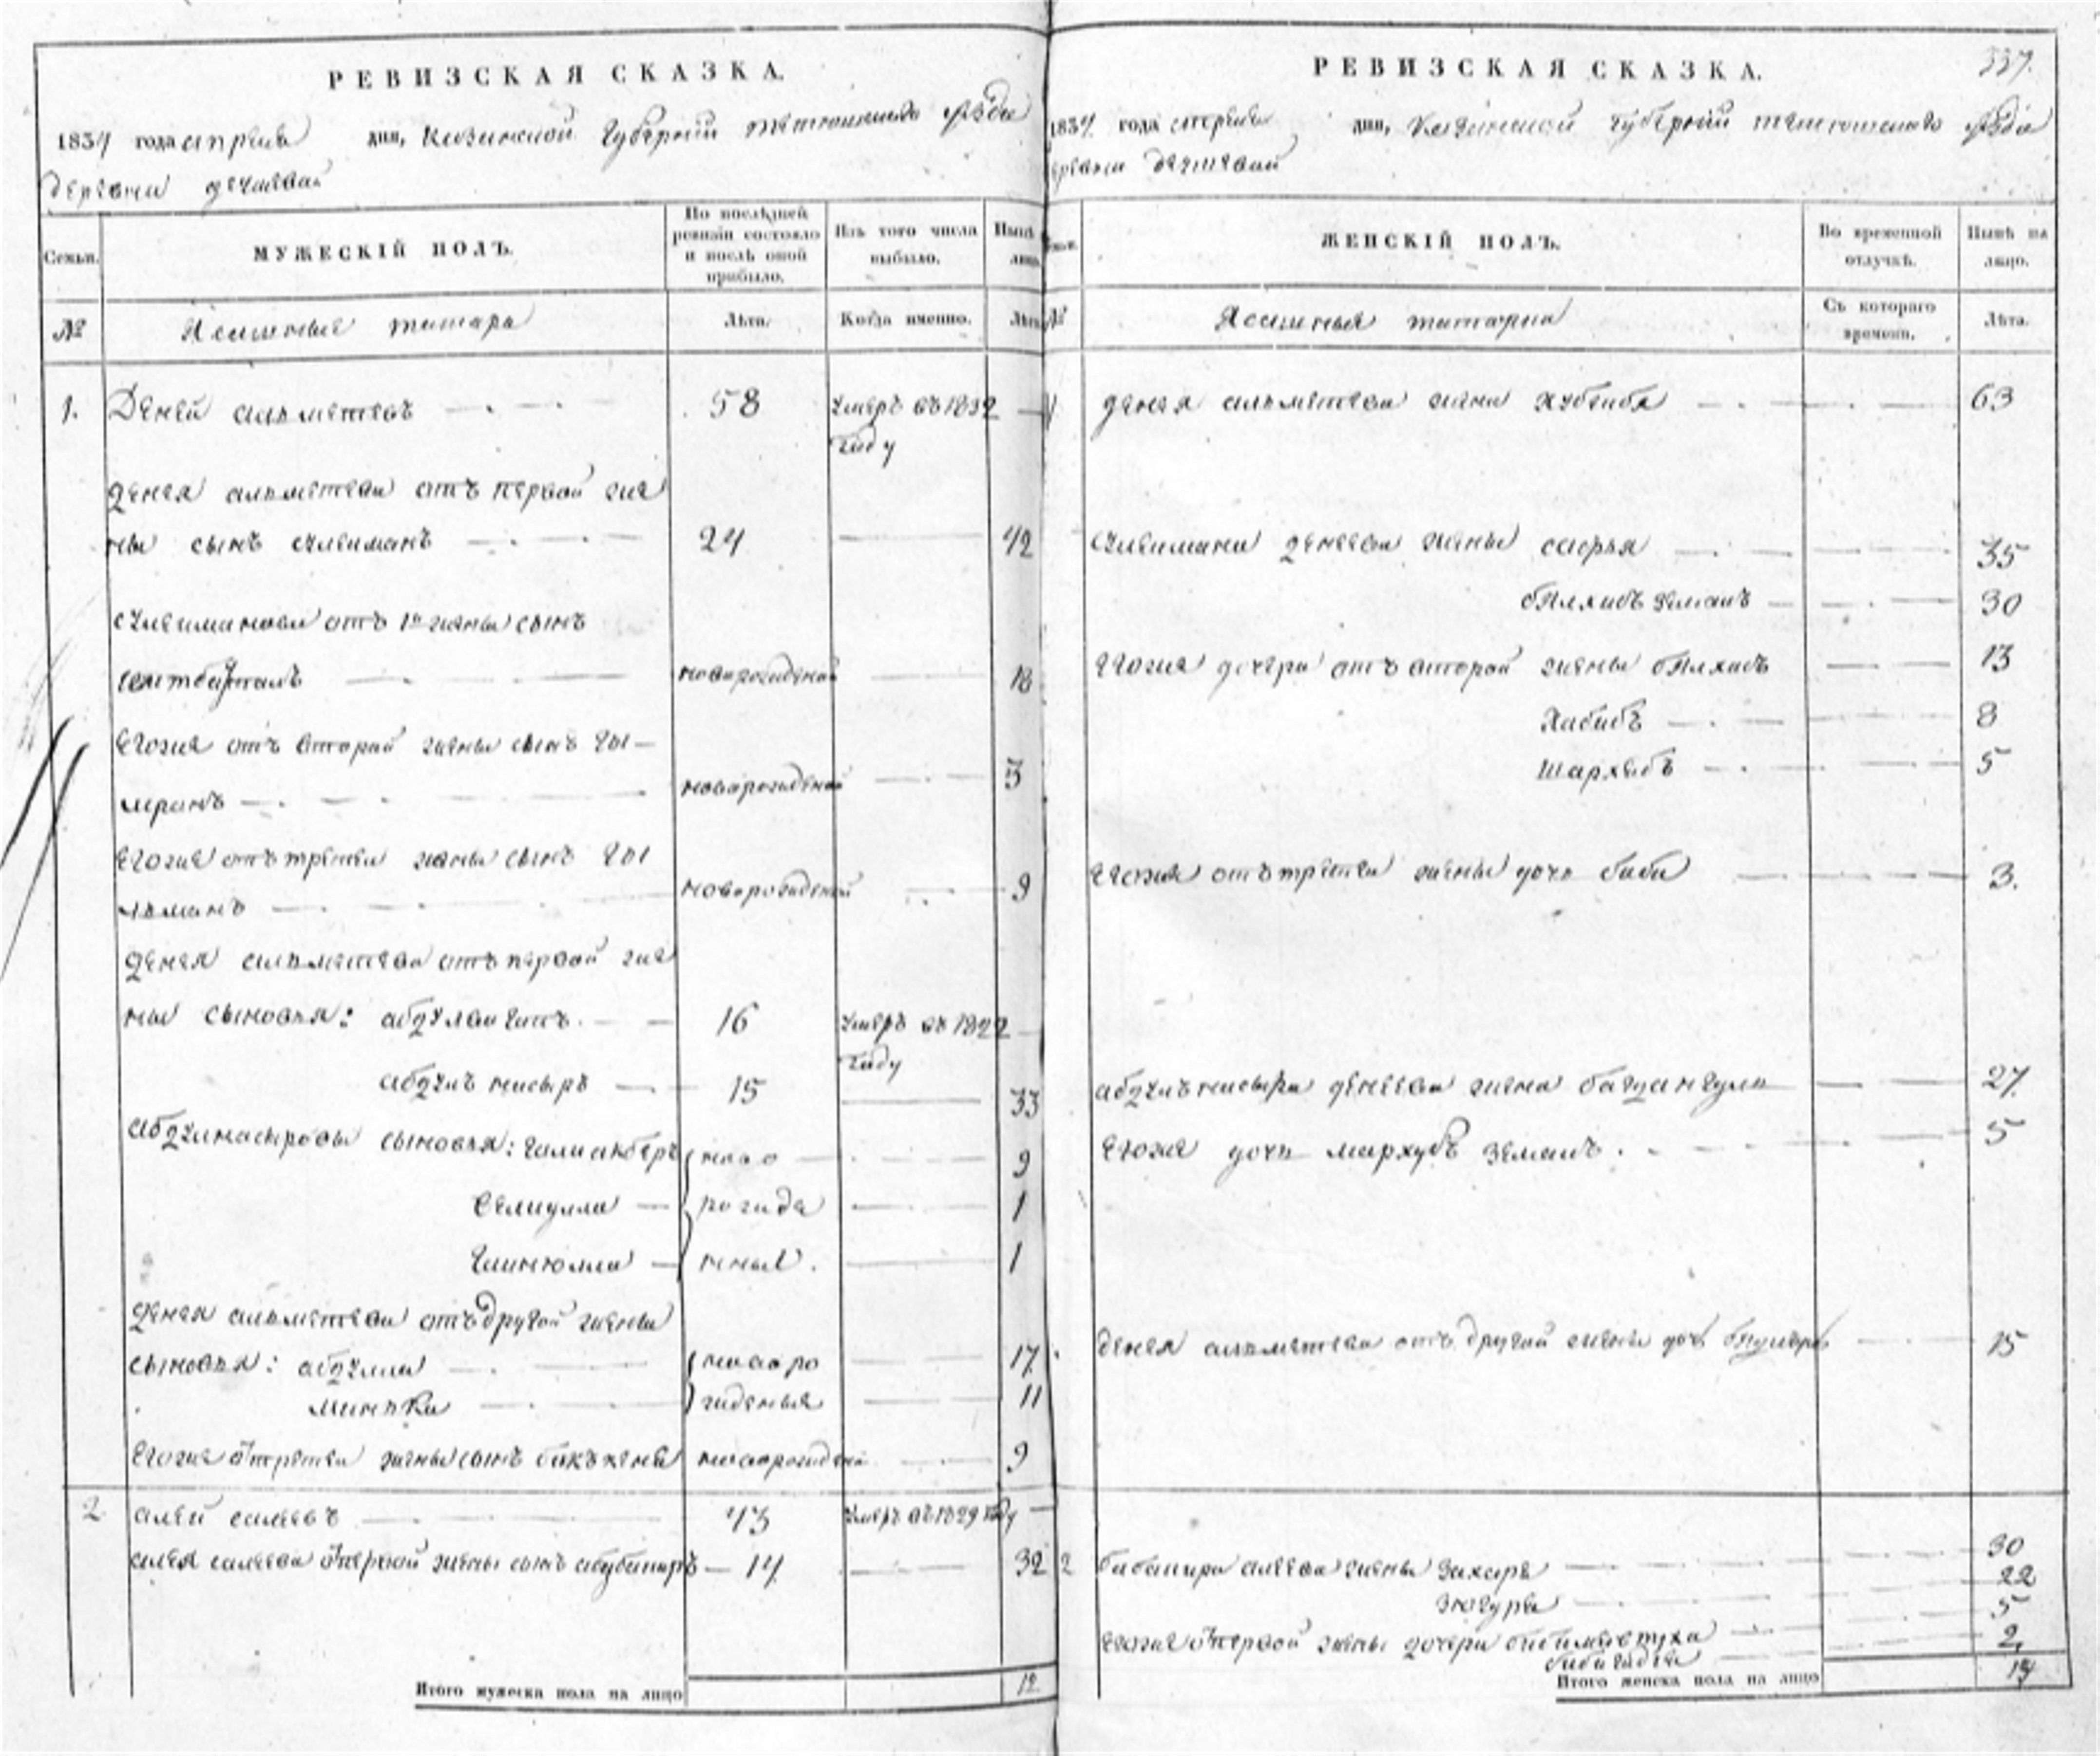 РЕВИЗСКАЯ СКАЗКА.
1834 года апреля дня, Казанской Губернiи тетюшскаго уѣзда
деревни
Семьи.
МУЖЕСКIЙ ПОЛЪ.
По послѣдней ревизiи состояло и послѣ оной прибыло.
Изъ того числа выбыло.
Нынѣ лицо.
№
Ясашныя татара
Лѣта.
Когда именно.
Лѣта
1. Деней альметевъ 58 Умеръ въ 1832 году
Денея альметева отъ первой же
ны сынъ сулейманъ 24 42
сулейманова отъ 1й жены сынъ
новорожденной 18
Егожа отъ второй жены сынъ гы-
мранъ новорожденной 3
Егожа отъ третей жены сынъ гы
льманъ новорожденной 9
Денея альметева отъ первой же
ны сыновья: 16 Умеръ въ 1822 году
абдулъ насыръ 15 33
абдулнасырова сыновья: галиакберъ ново 9
рожде 1
ные. 1
Денея альметева отъ другой жены
сыновья: абдулла новоро 17
жденыя 11
Егожа отъ третей жены сынъ новорожденой 9
2 алей 43 Умеръ въ 1829 году
алея отъ первой жены сынъ абубакиръ 14 32
Итого мужеска пола на лицо 12
РЕВИЗСКАЯ СКАЗКА.
337.
1834 года апреля дня, Казанской губернiи тетюшскаго уѣзда
деревни
ЖЕНСКIЙ ПОЛЪ.
Во временной отлучкѣ.
Нынѣ на лицо.
№
Ясашныя татарки
Съ котораго времени.
Лѣта.
1 Денея альметева жена хубейбя 63
сулеймана денеева жены сафья 35
30
Егожа дочери отъ второй жены 13
Хабибъ 8
Шархебъ 5
Егожа отъ третей жены дочь биби 3.
абдулъ насыра денеева жена 27.
Егожа дочь мархубъ земалъ. 5
Денея альметева отъ другой жены дочь 15
2 алеева жены Захира 30
Зюгура 22
5
Егожа отъ первой жены дочери 2,
Итого женска пола на лицо 14